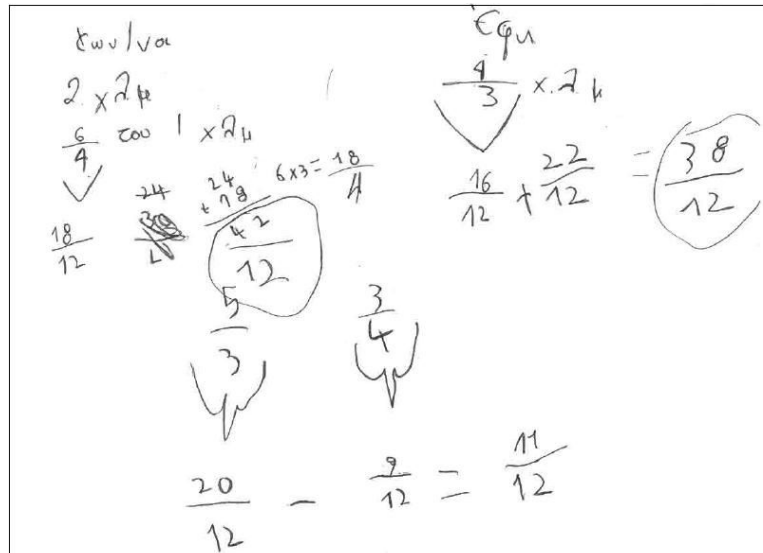 Κων/να
2 χλμ
6/4 του 1 χλμ
18/12 24/12 24 + 18 42/12
6x3= 18/4
Έφη
4/3 χλμ
16/12 + 22/12 = 38/12
5/3 3/4
20/12 - 9/12 = 11/12